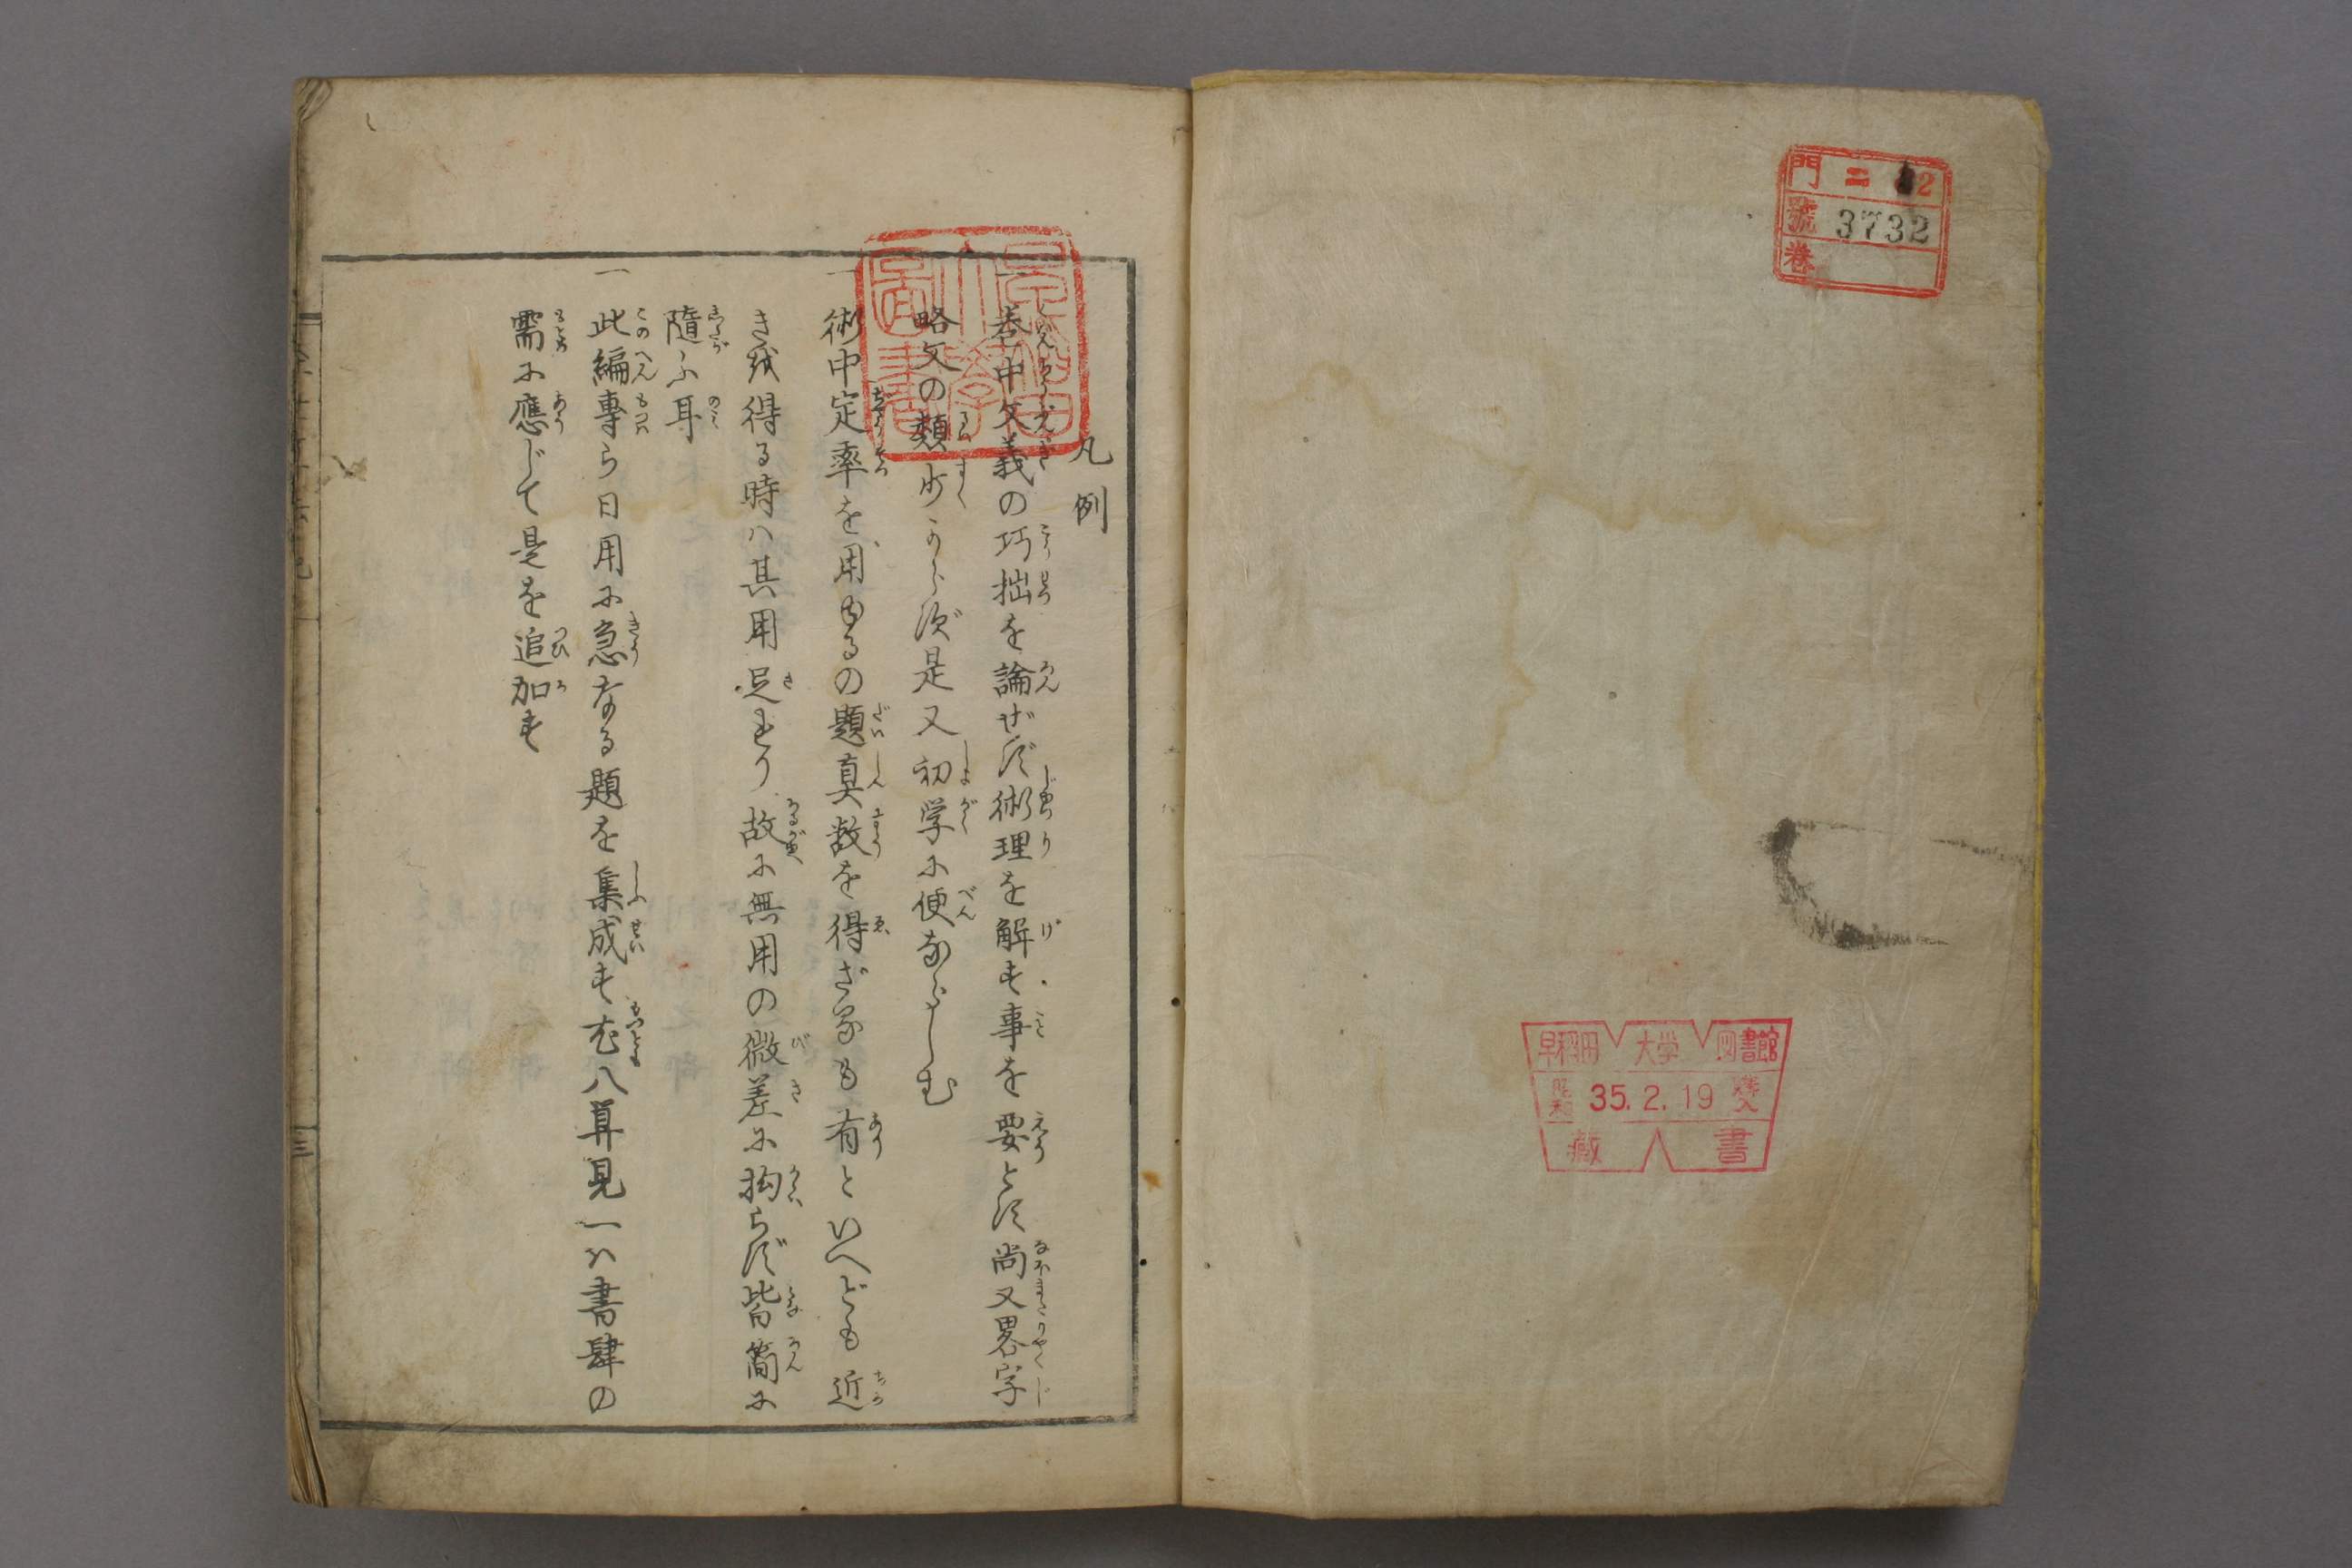 門 ニ 2
號 3732
卷
早稲田大学図書館
昭和 35.2.19 購求
蔵書
凡例
一 巻中文義の巧拙を論ぜず術理を解す事を要とす尚又畧字
略文の類少からず是又初学に便ならしむ
一 術中定率を用ゆるの題真数を得ざるも有といへども近
きを得る時ハ其用足れり故に無用の微差に拘らず皆簡に
隨ふ耳
一 此編専ら日用に急なる題を集成す尤八算見一ハ書肆の
需に應じて是を追加す
三